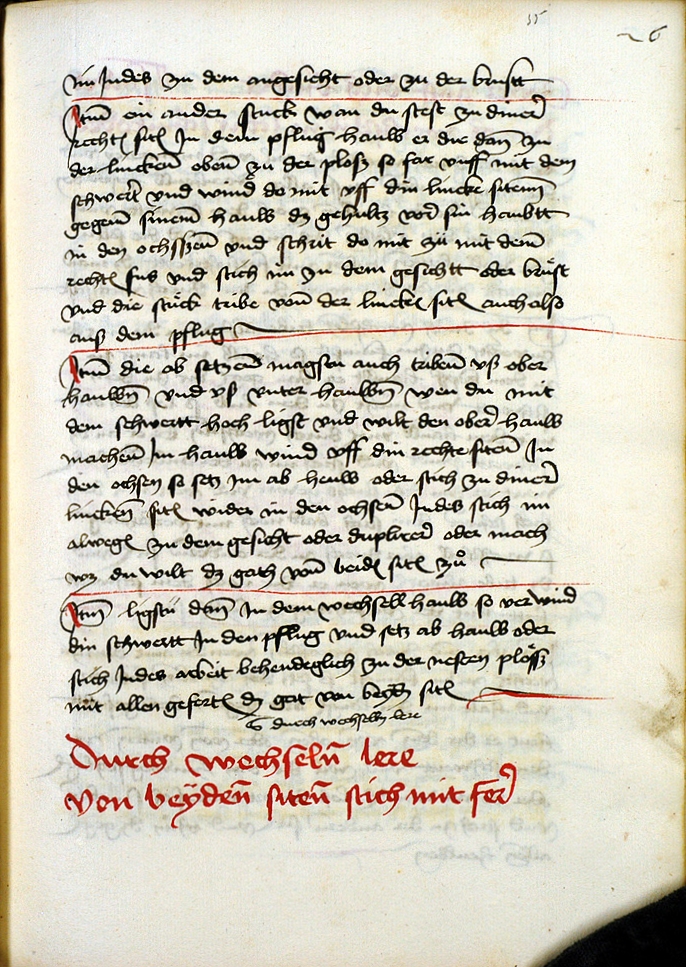 35
26
im Jndes zu dem angesicht oder zu der brustt
Jtm̄ ein ander stuck wan du stest zu diner
recht sit Jn dem pflug haūw er die dan̄ zu
der lincken̄ oben̄ zu der plosz so far vff mit dem
schwert vnd wind do mit vff din lincke sitenn̄
gegen̄ sinem̄ hauw dz gehultz vor sin haubtt
in den ochssen̄ vnd schrit do mit zu mit dem̄
recht fus vnd stich im zu dem gesichtt oder brust
vnd die stuck tribe von̄ der linck sit auch also
auß dem pflug
Jtm̄ die ab setzen̄ magstu auch triben̄ vß ober
hauwn̄ vnd vß vnter hauwn̄ wen du mit
dem schwertt hoch ligst vnd wilt den ober hauw
machen̄ Jm hauw wind vff din rechte siten̄ Jn
den ochsen so setz im ab hauw oder stich zu diner
lincken̄ sit wider in den ochsen̄ Jndes stich im
alweg zu dem gesicht oder duplirer oder mach
wz du wilt dz gath von̄ beid sit zů
Jtm̄ ligstu dan̄ Jn dem wechsell hauw so verwind
din schwertt Jn den pflug vnd setz ab hauw oder
stich Jndes arbeit behendeglich zu der nesten plossz
mit allen gefert dz gat von beyd sit
durch wechseln lere
Durch wechseln̄ lere
von beÿden̄ siten̄ stich mit ser